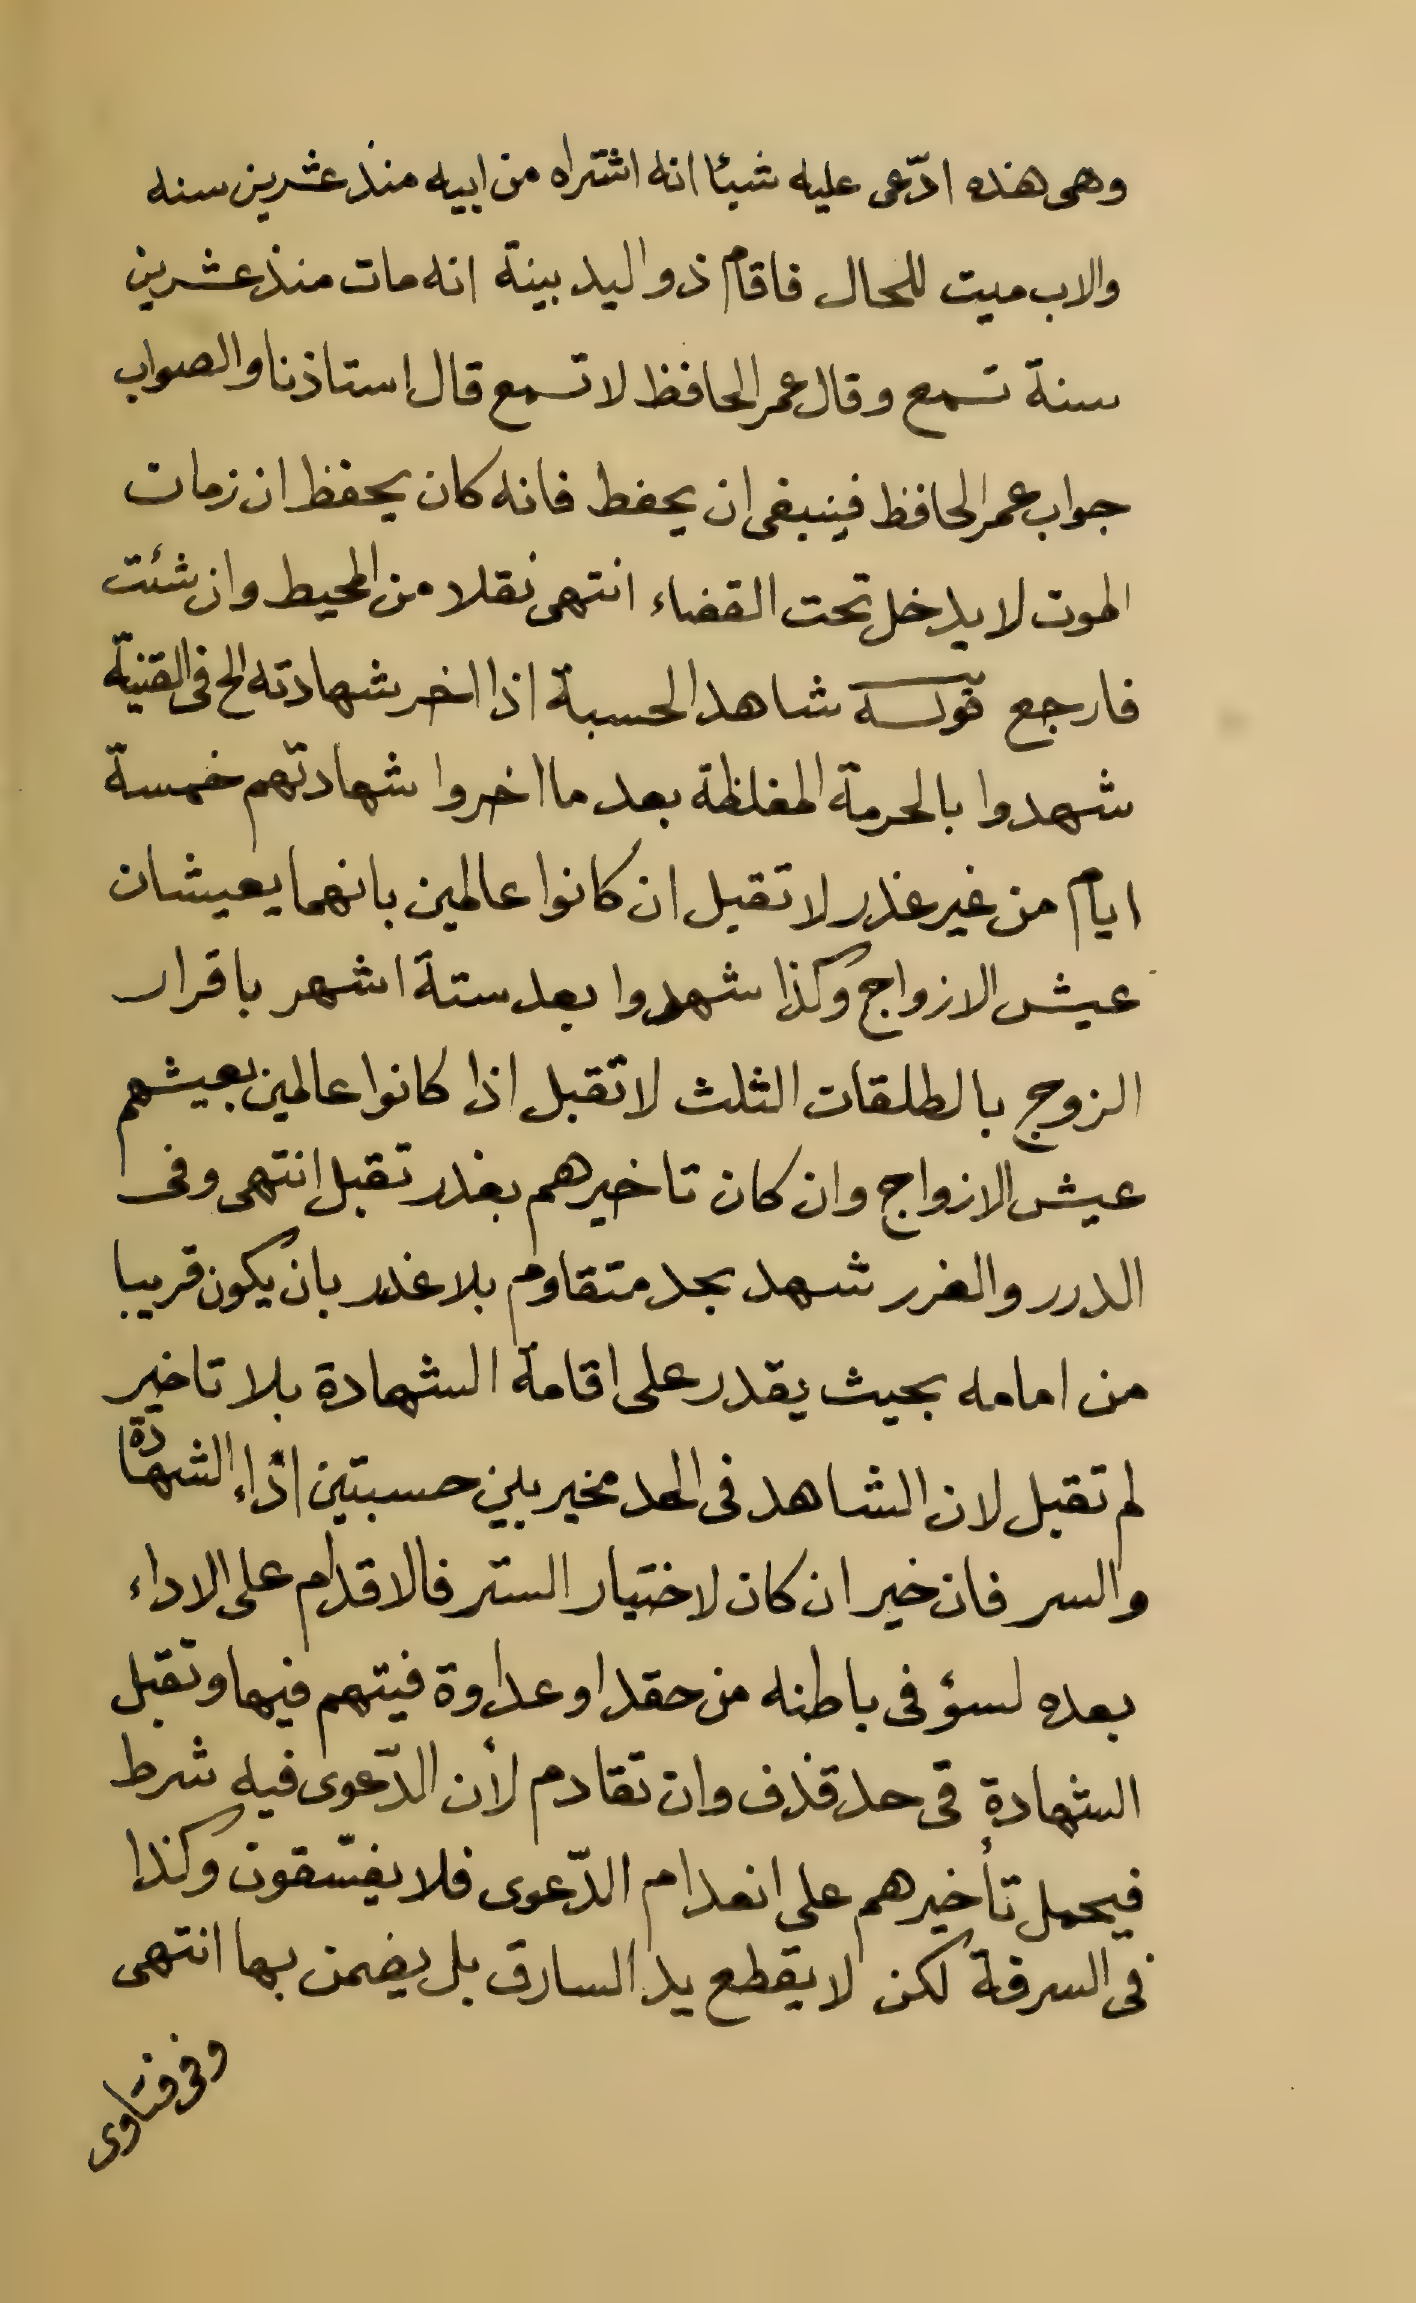 وهى هذه ادّعى عليه شيئا انه اشتراه من ابيه منذ عشرين سنه
والاب ميت للحال فاقام ذو اليد بينة انه مات منذ عشرين
سنة تسمع وقال عمر الحافظ لا تسمع قال استاذنا والصواب
جواب عمر الحافظ فينبغى ان يحفط فانه كان يحفظ ان زمات
الموت لا يدخل تحت القضاء انتهى نقلا من المحيط وان شئت
فارجع قوله شاهد الحسبة اذا اخر شهادته الخ فى القنية
شهدوا بالحرمة المغلظة بعد ما اخروا شهادتهم خمسة
ايام من غير غذر لا تقبل ان كانوا عالمين بانهما يعيشان
عيش الازواج وكذا شهدوا بعد ستة اشهر باقرار
الزوج بالطلقات الثلث لا تقبل اذا كانوا عالمين بعيشهم
عيش الازواج وان كان تاخيرهم بغذر تقبل انتهى وفى
الدرر والغرر شهد بحد متقاوم بلا غذر بان يكون قريبا
من امامه بحيث يقدر على اقامة الشهادة بلا تاخير
لم تقبل لان الشاهد فى الحد مخير بين حسبتين اذاء الشهادة
والسر فان خير ان كان لاختيار الستر فالاقدام على الاداء
بعده لسؤ فى باطنه من حقد او عداوة فيتهم فيها وتقبل
الشهادة فى حد قذف وان تقادم لأن الدّعوى فيه شرط
فيحمل تأخيرهم على انعدام الدّعوى فلا يفسّقون وكذا
فى السرقة لكن لا يقطع يد السارق بل يضمن بها انتهى
وفى فتاوى